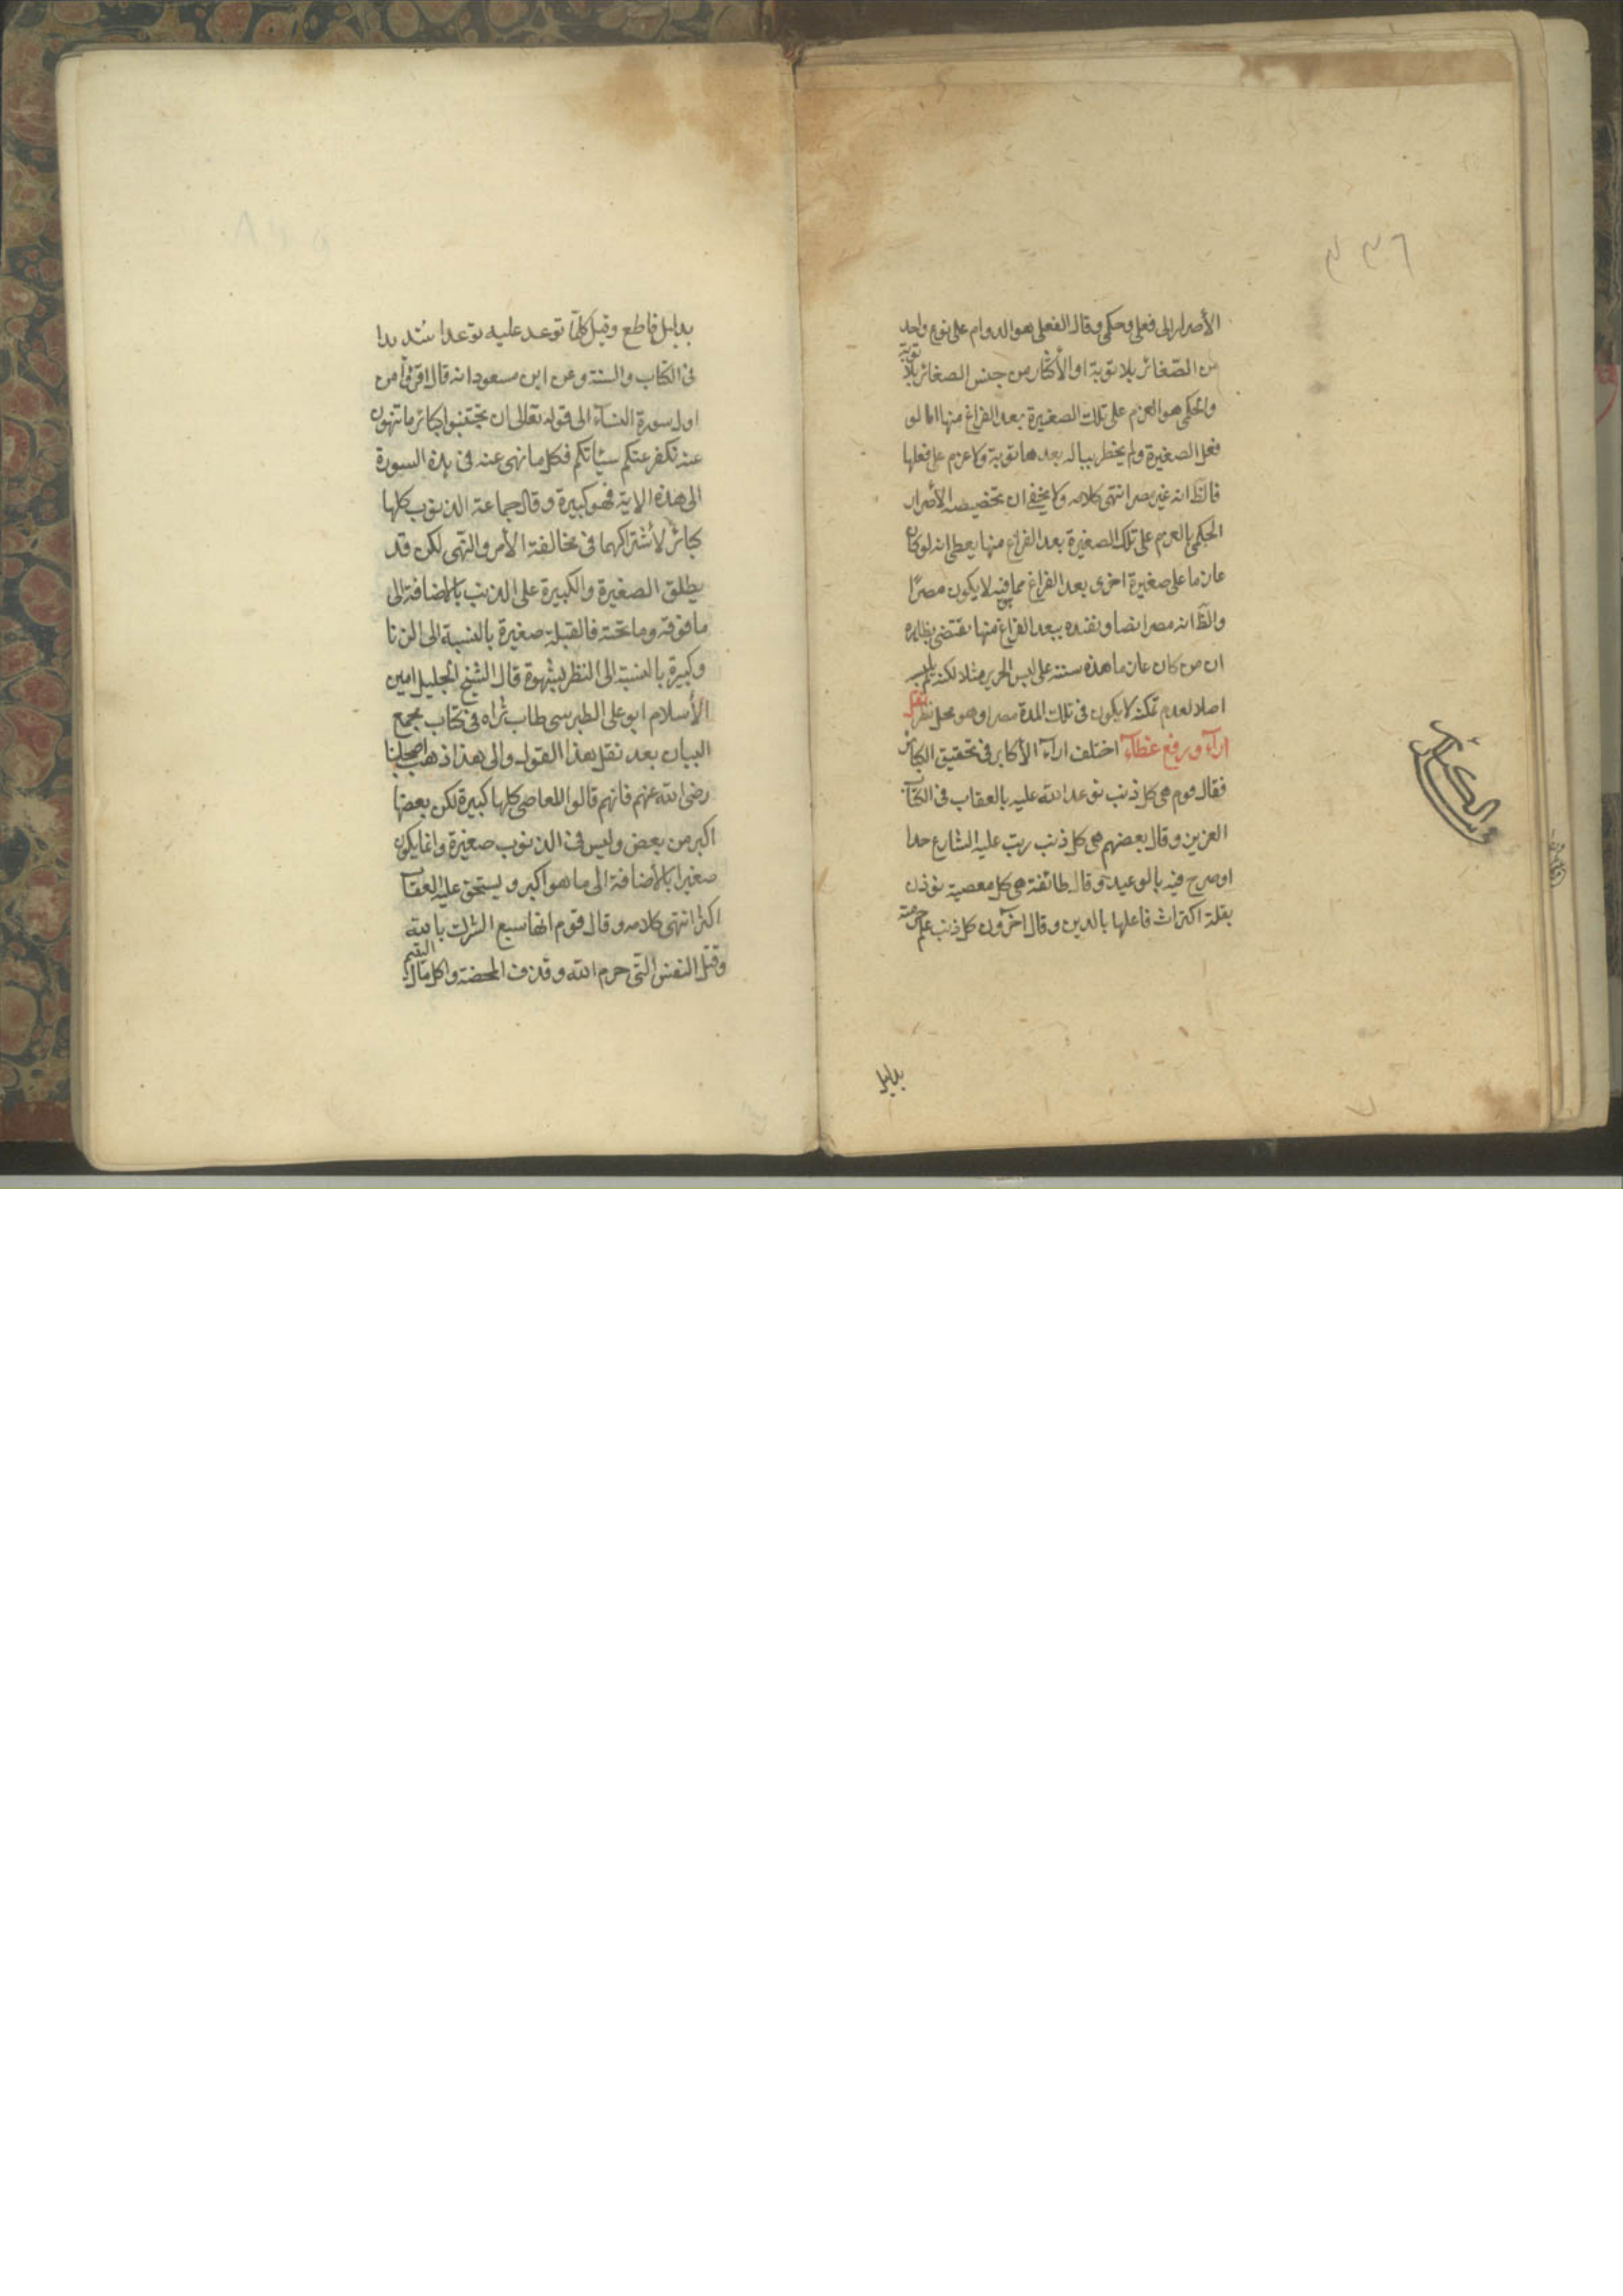 ٣٣٦
الأصرار الى فعلى وحكمى وقال الفعلى هو الدوام على نوع واحد
من الصّغائر بلا توبة او الأكثار من جنس الصغائر بلا توبة
والحكمى هو العزم على تلك الصغيرة بعد الفراغ منها اما لو
فعل الصغيرة ولم يخطر بباله بعدها توبة ولا عزم على فعلها
فالظ انه غير مصر انتهى كلامه ولا يخفى ان تخصيصه الأصرار
الحكمى بالعزم على تلك الصغيرة بعد الفراغ منها يعطى انه لو كان
عازما على صغيرة اخرى بعد الفراغ مما فيه لا يكون مصرًا
والظّ انه مصر ايضا وتقييده ببعد الفراغ منها يقتضى بظاهره
ان من كان عازما مدة سنة على لبس الحرير مثلا لكنه لم يلبسه
اصلا لعدم تمكنه لا يكون فى تلك المدة مصرا وهو محل نظر نقل
اراء ورفع غطاء اختلف اراء الأكابر فى تحقيق الكبائر
فقال قوم هى كل ذنب توعد الله عليه بالعقاب فى الكتاب
العزيز وقال بعضهم هى كل ذنب رتب عليه الشارع حدا
او صرح فيه بالوعيد وقال طائفة هى كل معصية توذن
بقلة اكتراث فاعلها بالدين وقال اخرون كل ذنب علم حرمته
بدليل
بدليل قاطع وقيل كلّما توعد عليه توعدا شديدا
فى الكتاب والسنة وعن ابن مسعود انه قال اقرؤا من
اول سورة النساء الى قوله تعالى ان تجتنبوا كبائر ما تنهون
عنه نكفر عنكم سيئاتكم فكل ما نهى عنه فى هذه السورة
الى هذه الاية فهو كبيرة وقال جماعة الذنوب كلها
كبائر لأشتراكهما فى مخالفة الأمر والنهى لكن قد
يطلق الصغيرة والكبيرة على الذنب بالاضافة الى
ما فوقه وما تحته فالقبلة صغيرة بالنسبة الى الزنا
وكبيرة بالنسبة الى النظر بشهوة قال الشيخ الجليل امين
الأسلام ابو على الطبرسى طاب ثراه فى كتاب مجمع
البيان بعد نقل هذا القول والى هذا ذهب اصحابنا
رضى الله عنهم فانهم قالوا المعاصى كلها كبيرة لكن بعضها
اكبر من بعض وليس فى الذنوب صغيرة وانما يكون
صغيرا بالأضافة الى ما هو اكبر ويستحق عليه العقاب
اكثر انتهى كلامه وقال قوم انها سبع الشرك بالله
وقتل النفس التى حرم الله وقذف المحصنة واكل مال اليتيم